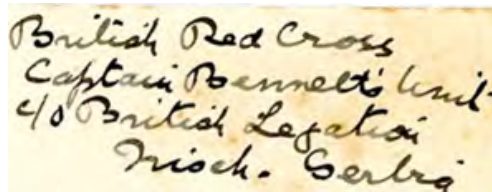 British Red Cross
Captain Bennett's Unit
c/o British Legation
Nisch. Serbia